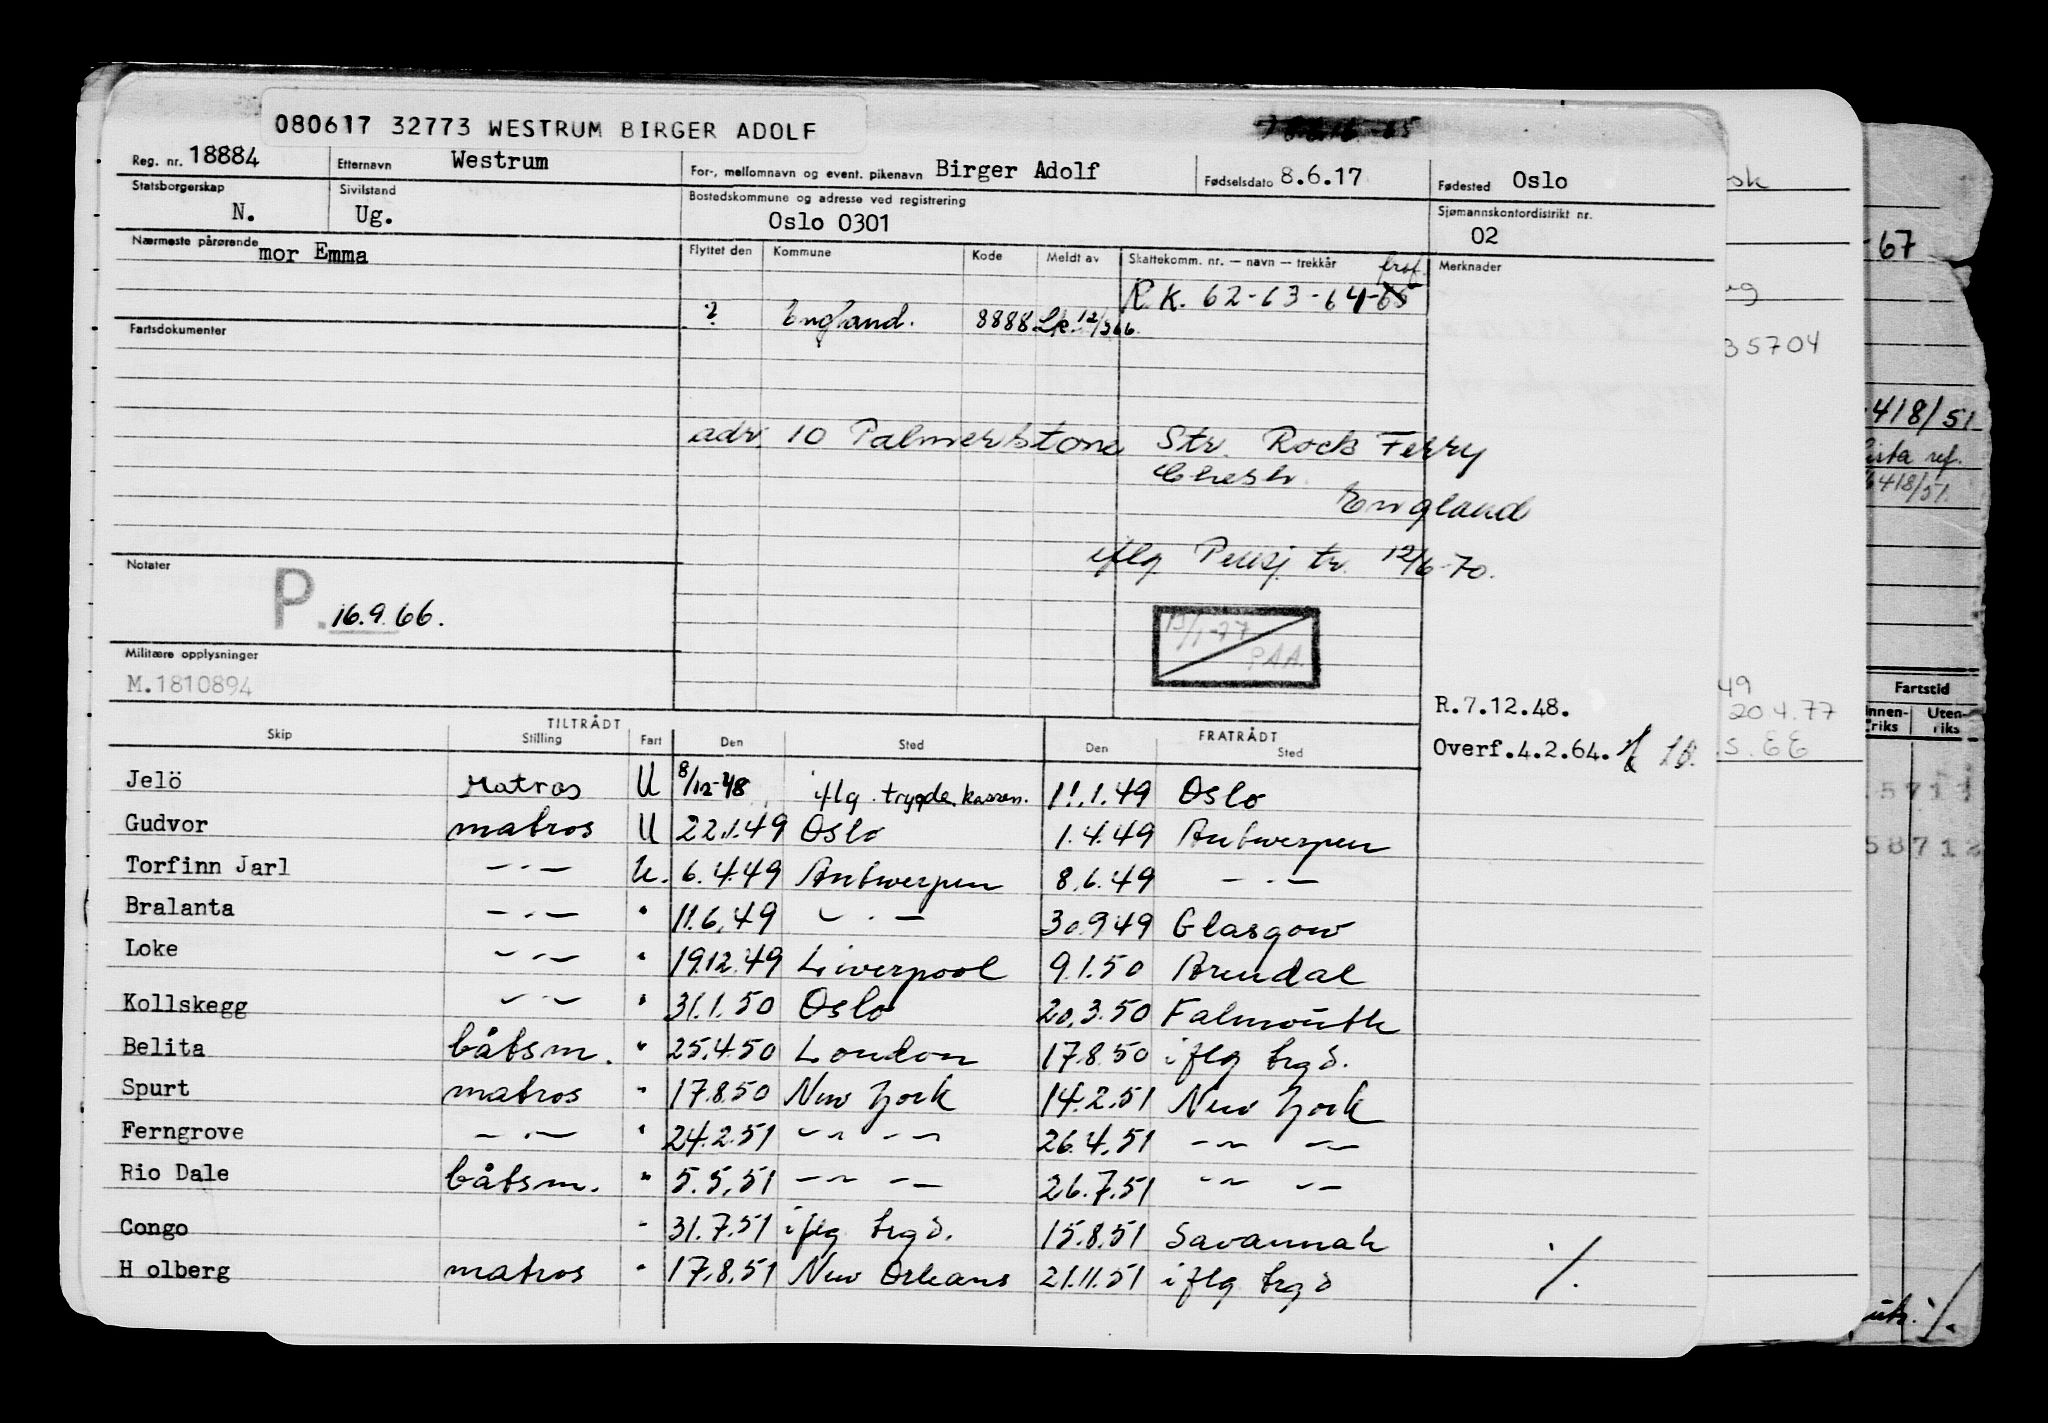 080617 32773 WESTRUM BIRGER ADOLF
Reg. nr. 18884 Etternavn Westrum For-, mellomnavn og event. pikenavn Birger Adolf Fødselsdato 8.6.17 Fødested Oslo
Statsborgerskap N. Sivilstand Ug. Bostedskommune og adresse ved registrering Oslo 0301 Sjømannskontordistrikt nr. 02
Nærmeste pårørende mor Emma Flyttet den Kommune Kode Meldt av Skattekomm. nr. — navn — trekkår Merknader
R.K. 62-63-64-65
? England. 8888
Fartsdokumenter
35704
adr. 10 Palmerstone Str. Rock Ferry
Chesh.
England
iflg Pensj. tr. 12/6-70.
Notater P. 16.9.66.
Militære opplysninger
M.1810894
13/1-77
PAA.
R.7.12.48.
Overf.4.2.64.
TILTRÅDT FRATRÅDT
Skip Stilling Fart Den Sted Den Sted
Jelö Matros U 8/12-48 iflg. trygdekassen. 11.1.49 Oslo
Gudvor matros U 22.1.49 Oslo 1.4.49 Antwerpen
Torfinn Jarl —·— U. 6.4.49 Antwerpen 8.6.49 —·—
Bralanta —·— " 11.6.49 —·— 30.9.49 Glasgow
Loke —·— " 19.12.49 Liverpool 9.1.50 Arendal
Kollskegg —·— " 31.1.50 Oslo 20.3.50 Falmouth
Belita båtsm. " 25.4.50 London 17.8.50 iflg trgd.
Spurt matros " 17.8.50 New York 14.2.51 New York
Ferngrove —·— " 24.2.51 —〃— 26.4.51 —〃—
Rio Dale båtsm. " 5.5.51 —〃— 26.7.51 —〃—
Congo - 31.7.51 iflg trgd. 15.8.51 Savannah
H olberg matros " 17.8.51 New Orleans 21.11.51 iflg trgd
./.
-67
418/51
Lista ref.
6418/51
Fartstid
Innenriks Utenriks
49
20.4.77
58712